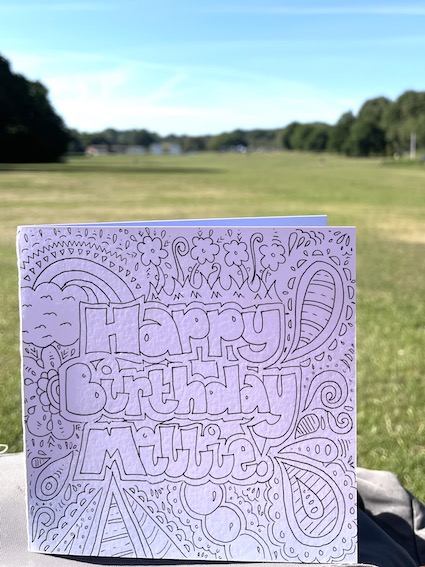 Happy
Birthday
Millie!